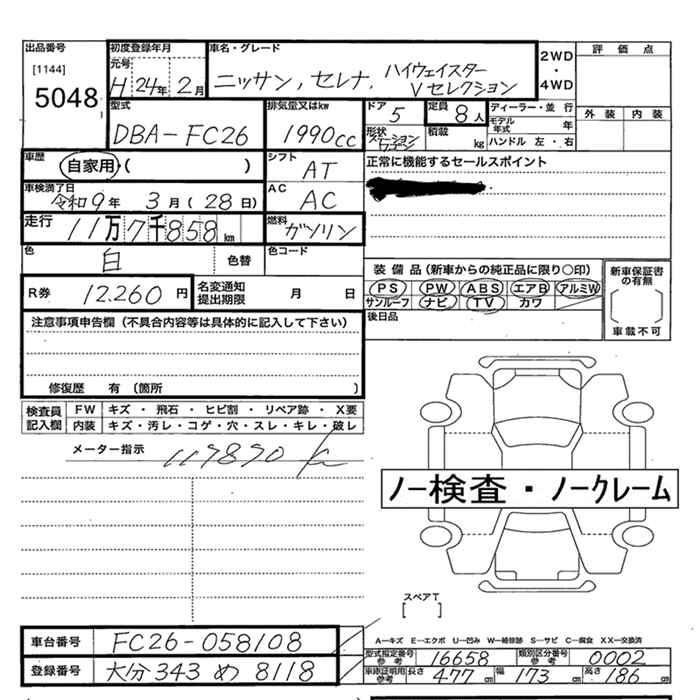 出品番号
[1144]
5048
初度登録年月
元号
H 24年 2月
車名・グレード
ニッサン, セレナ, ハイウェイスター
Vセレクション
2WD
・
4WD
評価点
外装 内装
型式
DBA-FC26
排気量又はkw
1990cc
ドア
5
定員
8人
形状
ステーションワゴン
積載
kg
ディーラー・並行
モデル年式 年
ハンドル 左・右
車歴
自家用・( )
シフト
AT
正常に機能するセールスポイント
車検満了日
令和9年 3月(28日)
AC
AC
走行
11万7千858km
燃料
ガソリン
色
白
色替
色コード
R券 12.260円
名変通知
提出期限
月 日
装備品(新車からの純正品に限り○印)
PS PW ABS エアB アルミW
サンルーフ ナビ TV カワ
後日品
新車保証書
の有無
車載不可
注意事項申告欄(不具合内容等は具体的に記入して下さい)
修復歴 有(箇所 )
検査員
記入欄
FW キズ・飛石・ヒビ割・リペア跡・X要
内装 キズ・汚レ・コゲ・穴・スレ・キレ・破レ
メーター指示
ノー検査・ノークレーム
スペアT
[ ]
車台番号 FC26-058108
登録番号 大分 343 め 8118
A―キズ E―エクボ U―凹み W―補修跡 S―サビ C―腐食 XX―交換済
型式指定番号
参考
16658
類別区分番号
参考
0002
車検証記載
参考
長さ 477cm 幅 173cm 高さ 186cm